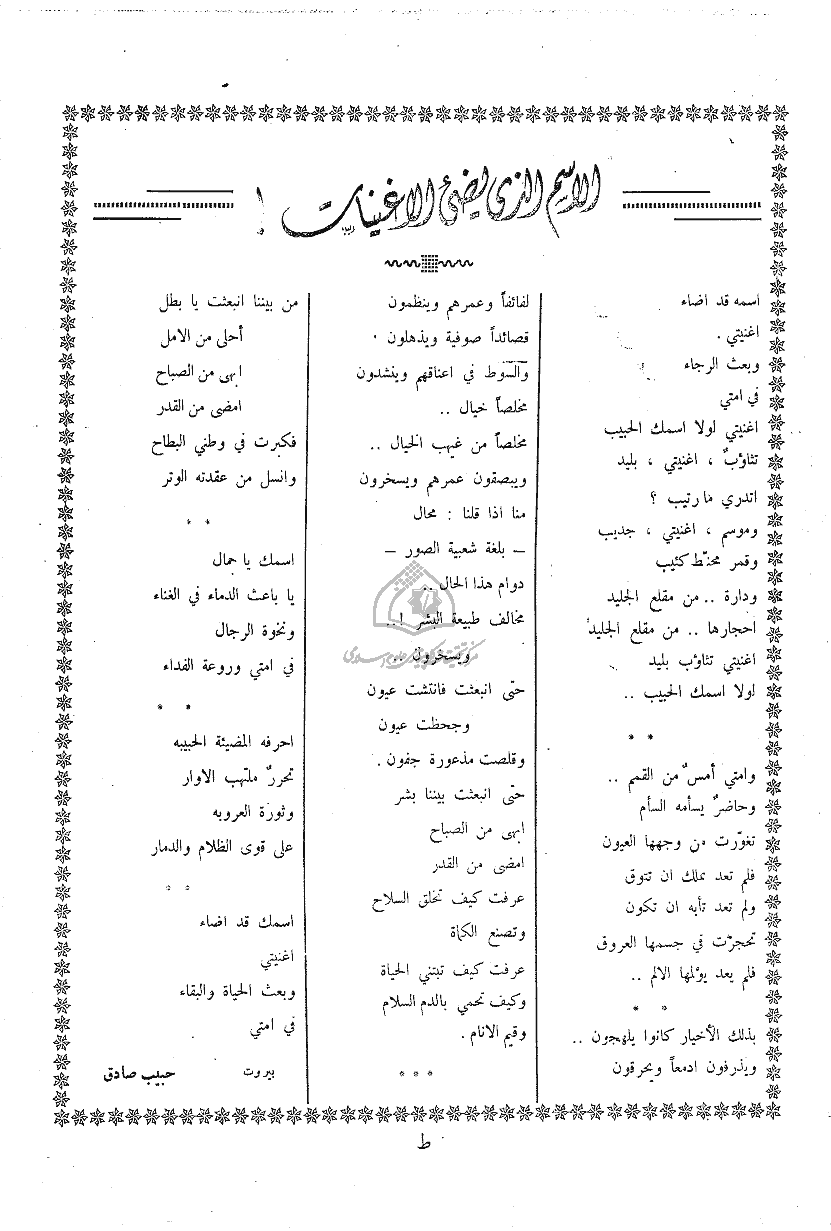 الاسم الذي يضئ الاغنيات !
اسمه قد اضاء
اغنيتي .
وبعث الرجاء
في امتي
اغنيتي لولا اسمك الحبيب
تثاؤبٌ ، اغنيتي ، بليد
اتدري ما رتيب ؟
وموسم ، اغنيتي ، جديب
وقمر محنّط كئيب
ودارة .. من مقلع الجليد
احجارها .. من مقلع الجليد
اغنيتي تثاؤب بليد
لولا اسمك الحبيب ..
* *
وامتي أمسٌ من القمم ..
وحاضرٌ يسأمه السأم
تغوّرت من وجهها العيون
فلم تعد تملك ان تتوق
ولم تعد تأبه ان تكون
تحجرّت في جسمها العروق
فلم يعد يؤلمها الالم ..
* *
بذلك الأخيار كانوا يلهجون ..
ويذرفون ادمعاً ويحرقون
لفائفاً وعمرهم وينظمون
قصائداً صوفية ويذهلون .
والسوط في اعناقهم وينشدون
مخلصاً خيال ..
مخلصاً من غيهب الخيال ..
ويبصقون عمرهم ويسخرون
منا اذا قلنا : محال
– بلغة شعبية الصور –
دوام هذا الحال ..
مخالف طبيعة البشر !..
ويسخرون ..
حتّى انبعثت فانتشت عيون
وجحظت عيون
وقلصت مذعورة جفون .
حتّى انبعثت بيننا بشر
ابهى من الصباح
امضى من القدر
عرفت كيف تخلق السلاح
وتصنع الكماة
عرفت كيف تبتني الحياة
وكيف تحمي بالدم السلام
وقيم الانام .
* * *
من بيننا انبعثت يا بطل
أحلى من الامل
ابهى من الصباح
امضى من القدر
فكبرت في وطني البطاح
وانسل من عقدته الوتر
* *
اسمك يا جمال
يا باعث الدماء في الغناء
ونخوة الرجال
في امتي وروعة الفداء
* *
احرفه المضيئة الحبيبه
تحررٌ ملتهب الاوار
وثورة العروبه
على قوى الظلام والدمار
* *
اسمك قد اضاء
اغنيتي
وبعث الحياة والبقاء
في امتي
بيروت حبيب صادق
ط